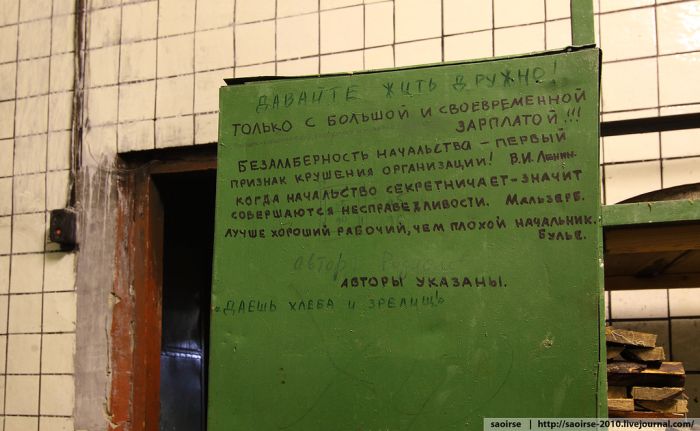 ДАВАЙТЕ ЖИТЬ ДРУЖНО!
ТОЛЬКО С БОЛЬШОЙ И СВОЕВРЕМЕННОЙ
ЗАРПЛАТОЙ!!!
БЕЗАЛАБЕРНОСТЬ НАЧАЛЬСТВА – ПЕРВЫЙ
ПРИЗНАК КРУШЕНИЯ ОРГАНИЗАЦИИ! В.И. Ленин.
КОГДА НАЧАЛЬСТВО СЕКРЕТНИЧАЕТ – ЗНАЧИТ
СОВЕРШАЮТСЯ НЕСПРАВЕДЛИВОСТИ. Мальзерб.
ЛУЧШЕ ХОРОШИЙ РАБОЧИЙ, ЧЕМ ПЛОХОЙ НАЧАЛЬНИК.
БУЛЬЕ.
автор
АВТОРЫ УКАЗАНЫ.
"ДАЕШЬ ХЛЕБА И ЗРЕЛИЩ!"
saoirse | http://saoirse-2010.livejournal.com/